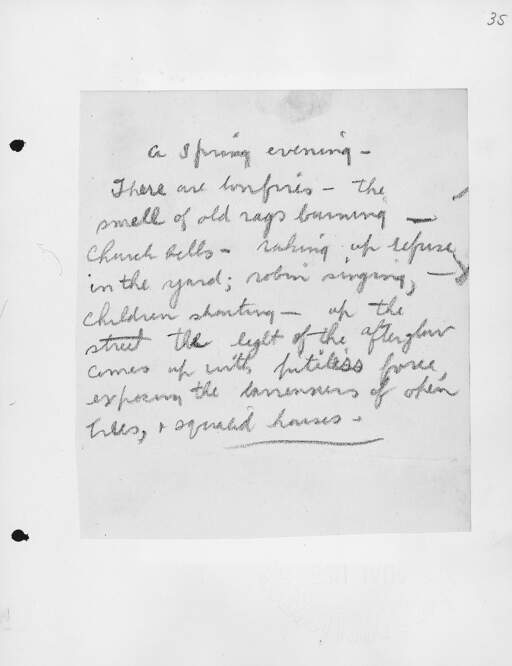 35
a Spring evening —
There are bonfires — the
smell of old rags burning —
Church bells — raking up refuse
in the yard; robin singing, —
Children shouting — up the
street the light of the afterglow
comes up with pitiless force,
exposing the barrenness of open
trees, + squalid houses .